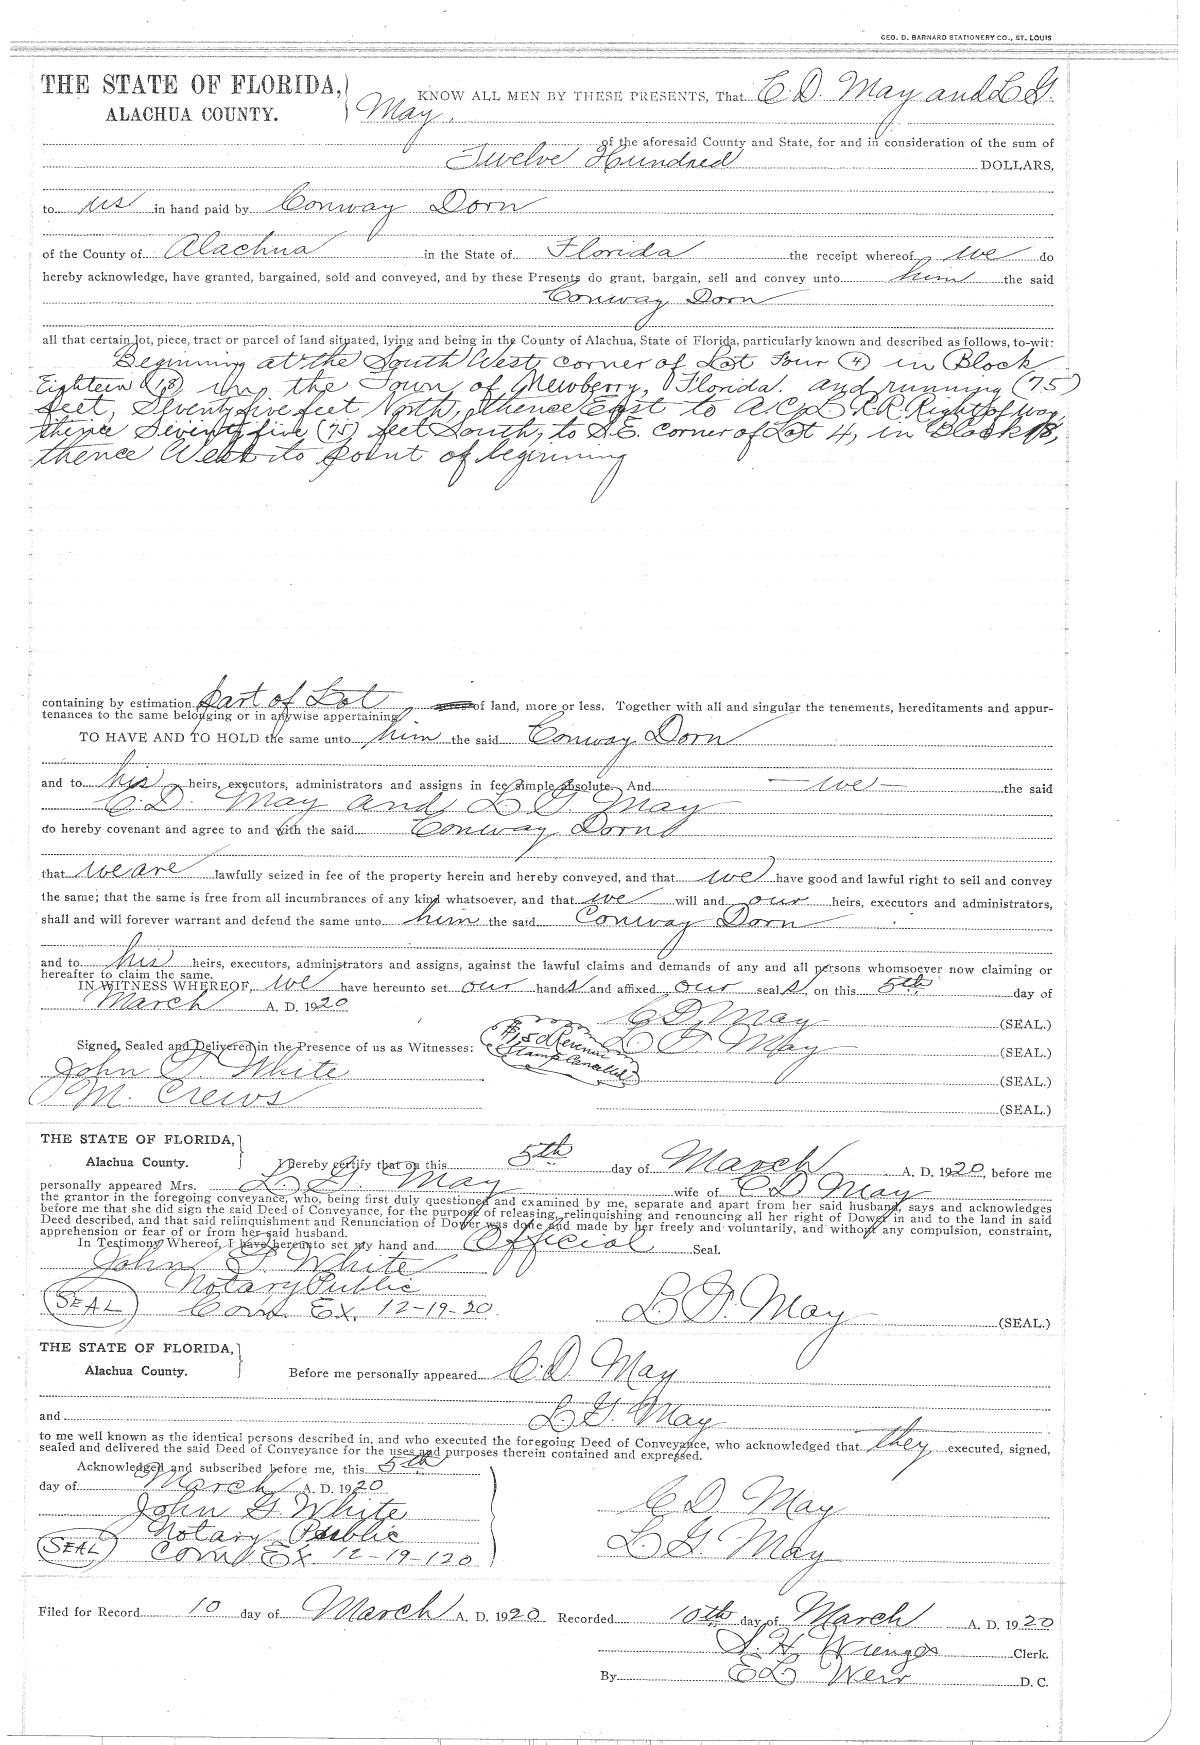 GEO. D. BARNARD STATIONERY CO., ST. LOUIS
THE STATE OF FLORIDA,
ALACHUA COUNTY.
KNOW ALL MEN BY THESE PRESENTS, That C. D. May and L G.
May.
of the aforesaid County and State, for and in consideration of the sum of
Twelve Hundred DOLLARS,
to us in hand paid by Conway Dorn
of the County of Alachua in the State of Florida the receipt whereof we do
hereby acknowledge, have granted, bargained, sold and conveyed, and by these Presents do grant, bargain, sell and convey unto him the said
Conway Dorn
all that certain lot, piece, tract or parcel of land situated, lying and being in the County of Alachua, State of Florida, particularly known and described as follows, to-wit:
Beginning at the South West corner of Lot Four (4) in Block
Eighteen (18) in the Town of Newberry, Florida. and running (75)
feet, Seventy five feet North, thence East to A.C.L R.R. Right of way,
thence Seventy five (75) feet South, to S.E. corner of Lot 4, in Block 18,
thence West to point of beginning
containing by estimation part of Lot of land, more or less. Together with all and singular the tenements, hereditaments and appur-
tenances to the same belonging or in anywise appertaining
TO HAVE AND TO HOLD the same unto him the said Conway Dorn
and to his heirs, executors, administrators and assigns in fee simple absolute. And — we — the said
C. D. May and L G. May
do hereby covenant and agree to and with the said Conway Dorn
that we are lawfully seized in fee of the property herein and hereby conveyed, and that we have good and lawful right to sell and convey
the same; that the same is free from all incumbrances of any kind whatsoever, and that we will and our heirs, executors and administrators,
shall and will forever warrant and defend the same unto him the said Conway Dorn
and to his heirs, executors, administrators and assigns, against the lawful claims and demands of any and all persons whomsoever now claiming or
hereafter to claim the same.
IN WITNESS WHEREOF, we have hereunto set our hands and affixed our seals, on this 5th day of
March A. D. 1920
C D. May (SEAL.)
$1.50 Revenue
Stamp Cancelled
L G May (SEAL.)
Signed, Sealed and Delivered in the Presence of us as Witnesses:
John G White (SEAL.)
M. Crews (SEAL.)
THE STATE OF FLORIDA,
Alachua County.
I hereby certify that on this 5th day of March A. D. 1920, before me
personally appeared Mrs. L G. May wife of C D May
the grantor in the foregoing conveyance, who, being first duly questioned and examined by me, separate and apart from her said husband, says and acknowledges
before me that she did sign the said Deed of Conveyance, for the purpose of releasing, relinquishing and renouncing all her right of Dower in and to the land in said
Deed described, and that said relinquishment and Renunciation of Dower was done and made by her freely and voluntarily, and without any compulsion, constraint,
apprehension or fear of or from her said husband.
In Testimony Whereof, I have hereunto set my hand and Official Seal.
John G. White
Notary Public
SEAL Com. Ex. 12-19-20.
L G. May (SEAL.)
THE STATE OF FLORIDA,
Alachua County.
Before me personally appeared C. D. May
and L G. May
to me well known as the identical persons described in, and who executed the foregoing Deed of Conveyance, who acknowledged that they executed, signed,
sealed and delivered the said Deed of Conveyance for the uses and purposes therein contained and expressed.
Acknowledged and subscribed before me, this 5th
day of March A. D. 1920
John G White
Notary Public
SEAL Com Ex. 12-19-120
C D. May
L G. May
Filed for Record 10 day of March A. D. 1920 Recorded 10th day of March A. D. 1920
S. H. Wienges Clerk.
By E L Weir D. C.